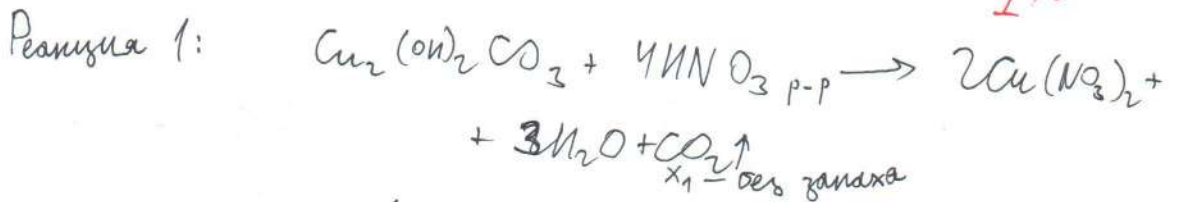 Реакция 1: Cu₂(OH)₂CO₃ + 4HNO₃ р-р → 2Cu(NO₃)₂ +
+ 3H₂O + CO₂↑
x₁ – без запаха